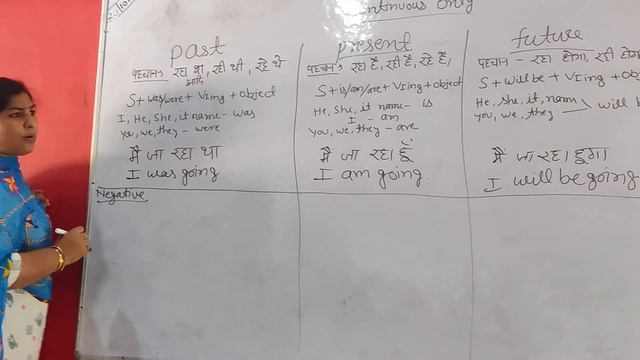 ntinuous Only
past
पहचान → रहा था, रही थी, रहे थे
आदि
S + was/were + VIing + object
I, He, She, it name - was
you, we, they - were
मैं जा रहा था
I was going
present
पहचान → रहा है, रही है, रहे है,
S + is/am/are + VIing + object
He, She, it name - is
I - am
You, we, they - are
मैं जा रहा हूँ
I am going.
future
पहचान - रहा होगा, रही होगा
S + will be + VIing + ob
He, she, it, nam
you, we, they
will b
मैं जा रहा हूगा
I will be going
Negative